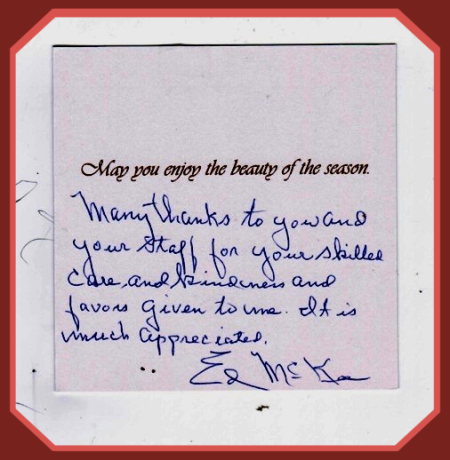 May you enjoy the beauty of the season.
Many thanks to you and
your staff for your skilled
care and kindness and
favors given to me. It is
much appreciated.
Ed